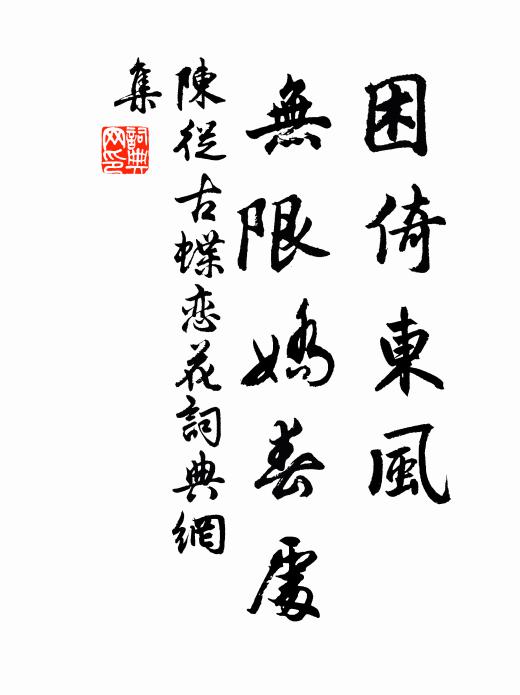 困倚東風
無限嬌春處
陳從古蝶恋花詞典網
集
詞典网印